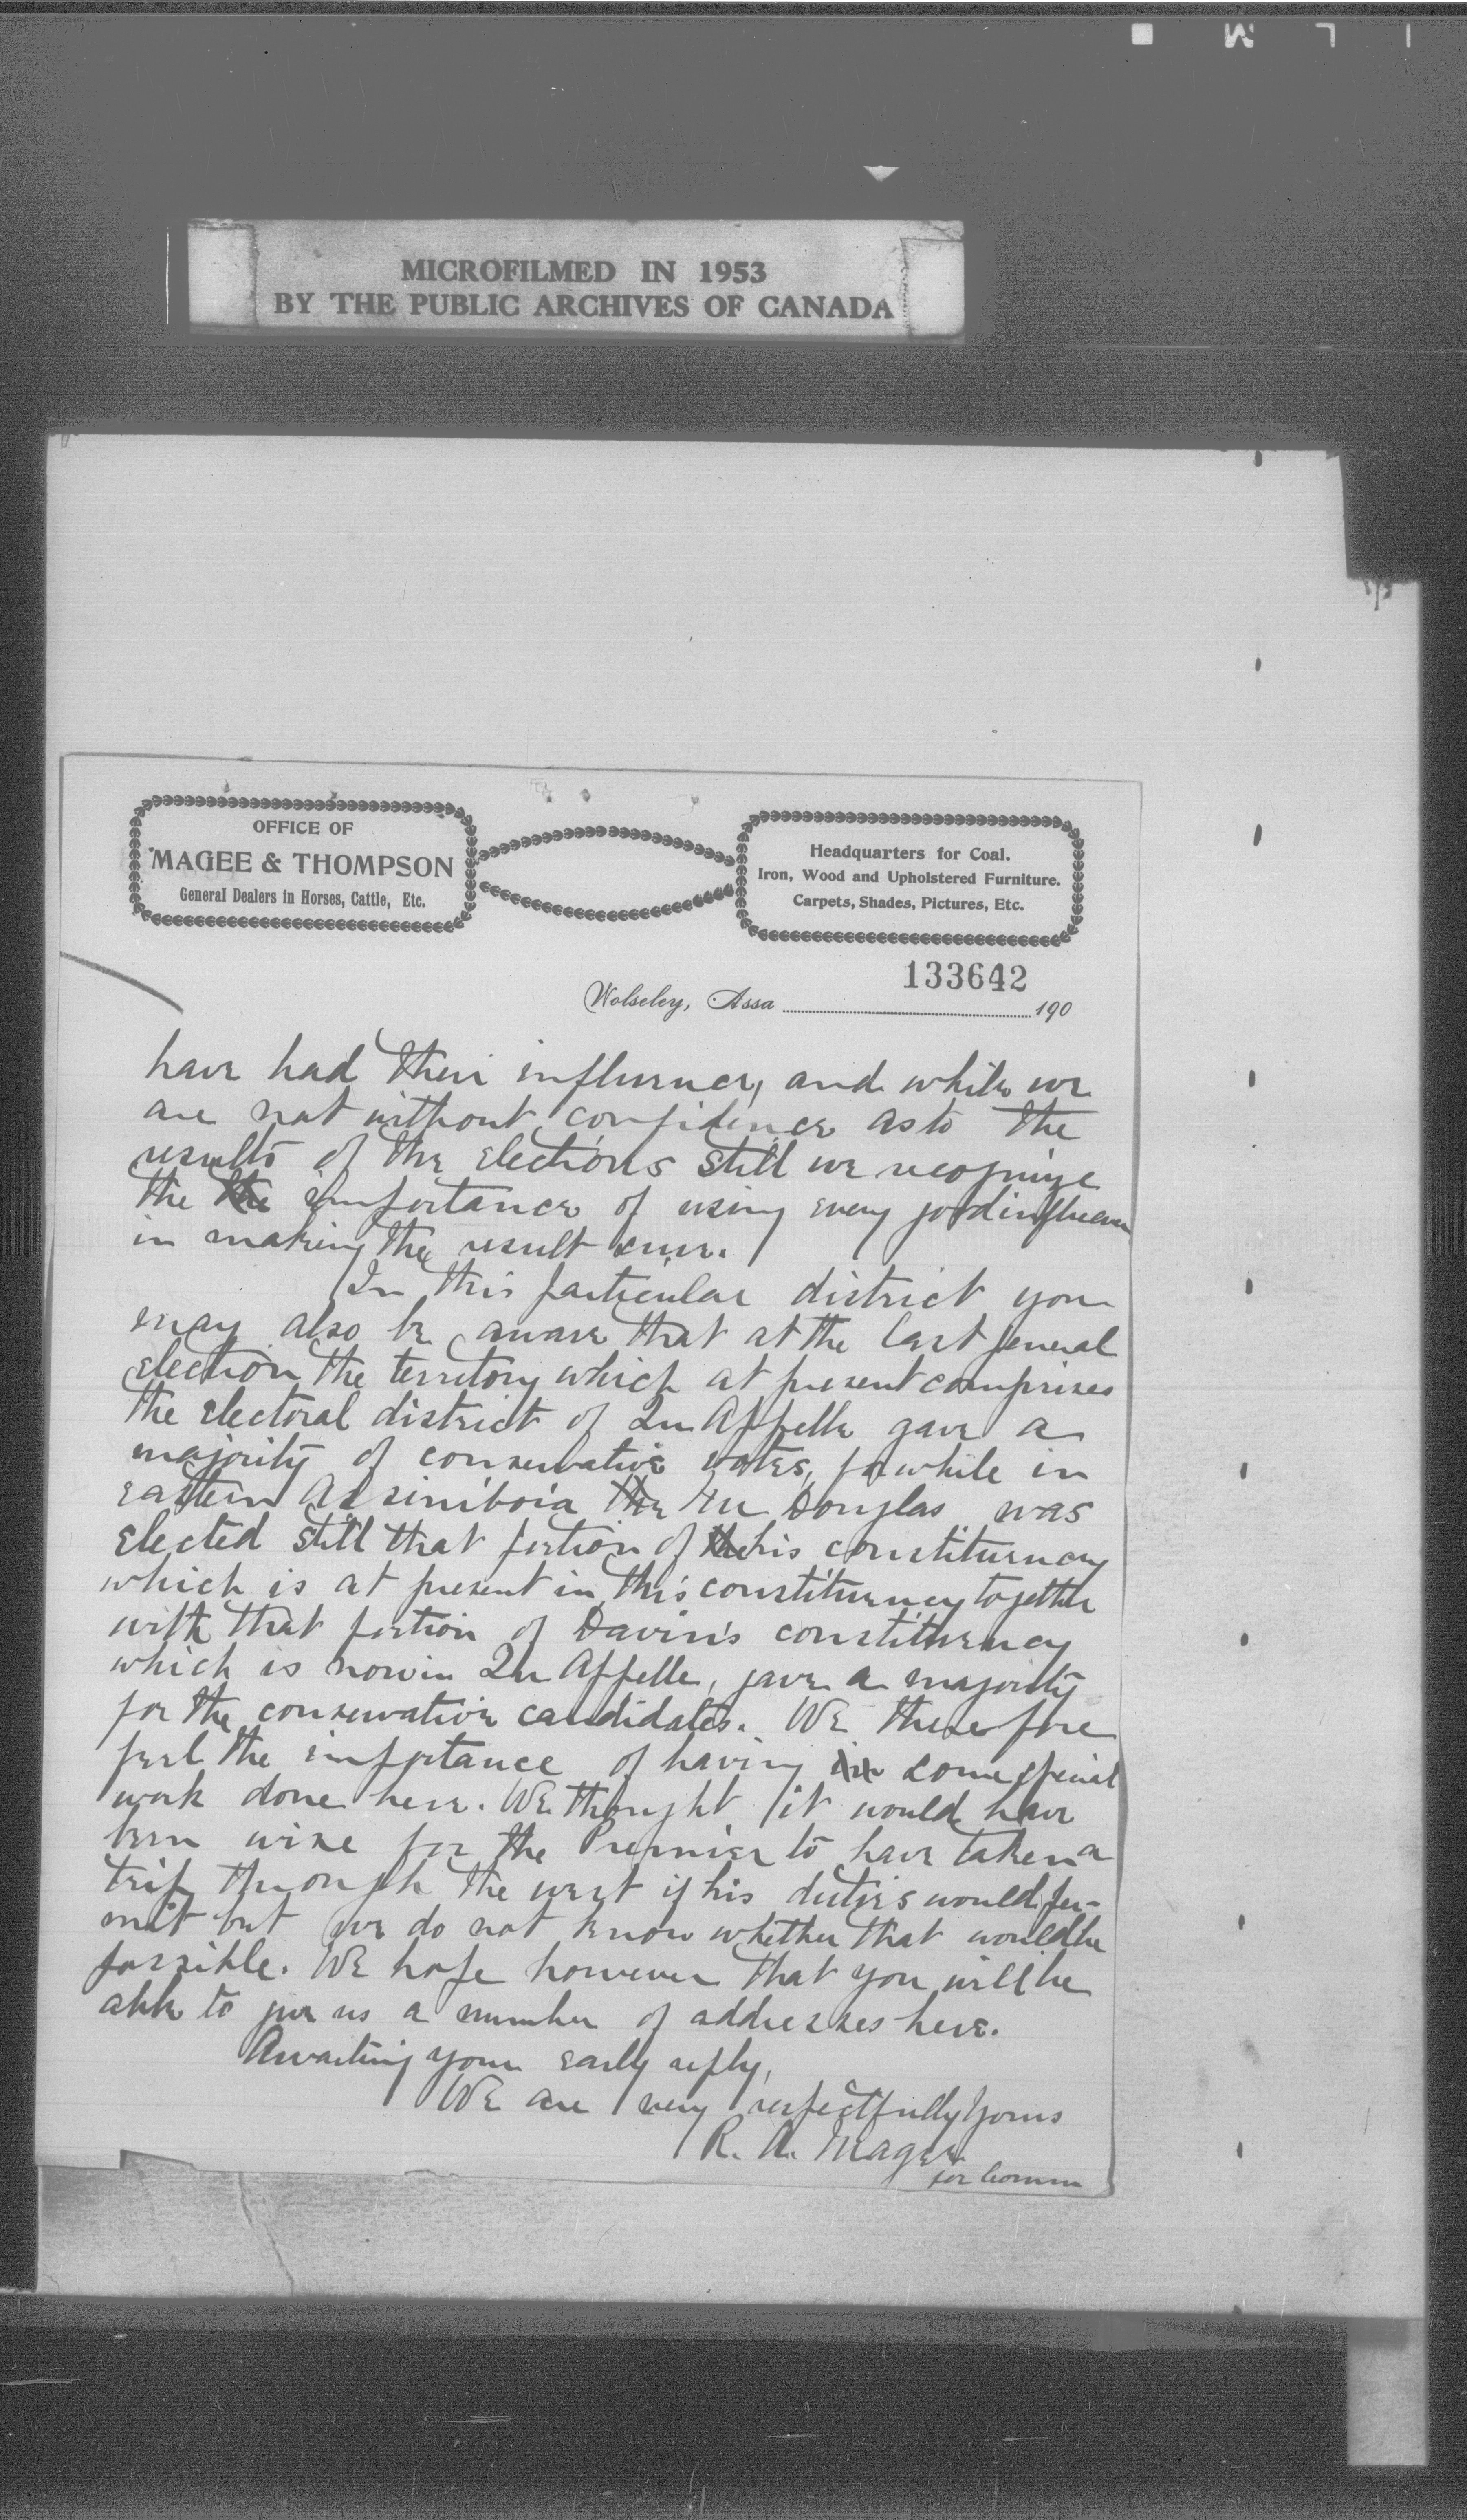 MICROFILMED IN 1953
BY THE PUBLIC ARCHIVES OF CANADA
OFFICE OF
MAGEE & THOMPSON
General Dealers in Horses, Cattle, Etc.
Headquarters for Coal.
Iron, Wood and Upholstered Furniture.
Carpets, Shades, Pictures, Etc.
133642
Wolseley, Assa 190
have had their influence, and while we
are not without confidence as to the
results of the elections still we recognize
the the importance of using every good influence
in making the result sure.
In this particular district you
may also be aware that at the last general
election the territory which at present comprises
the electoral district of Qu Appelle gave a
majority of conservative votes, for while in
eastern Assiniboia the Rev Douglas was
elected still that portion of his constituency
which is at present in this constituency together
with that portion of Davin's constituency
which is now in Qu Appelle, gave a majority
for the conservative candidates. We therefore
feel the importance of having some special
work done here. We thought it would have
been wise for the Premier to have taken a
trip through the west if his duties would per-
mit but we do not know whether that would be
possible. We hope however that you will be
able to give us a number of addresses here.
Awaiting your early reply,
We are very respectfully yours
R. A. Magee
for Comm